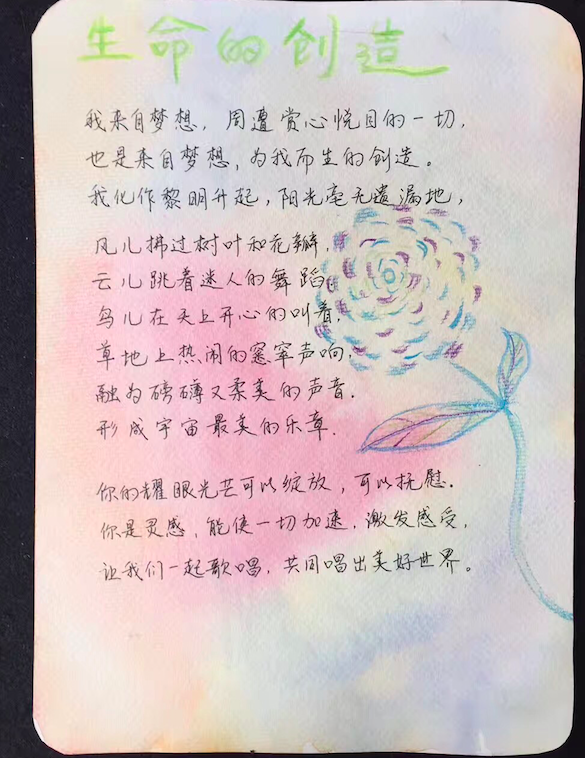 生命的创造
我来自梦想，周遭赏心悦目的一切，
也是来自梦想，为我而生的创造。
我化作黎明升起，阳光毫无遗漏地，
风儿拂过树叶和花瓣，
云儿跳着迷人的舞蹈，
鸟儿在天上开心的叫着，
草地上热闹的窸窣声响，
融为磅礴又柔美的声音．
形成宇宙最美的乐章．
你的耀眼光芒可以绽放，可以抚慰．
你是灵感，能使一切加速，激发感受，
让我们一起歌唱，共同唱出美好世界。